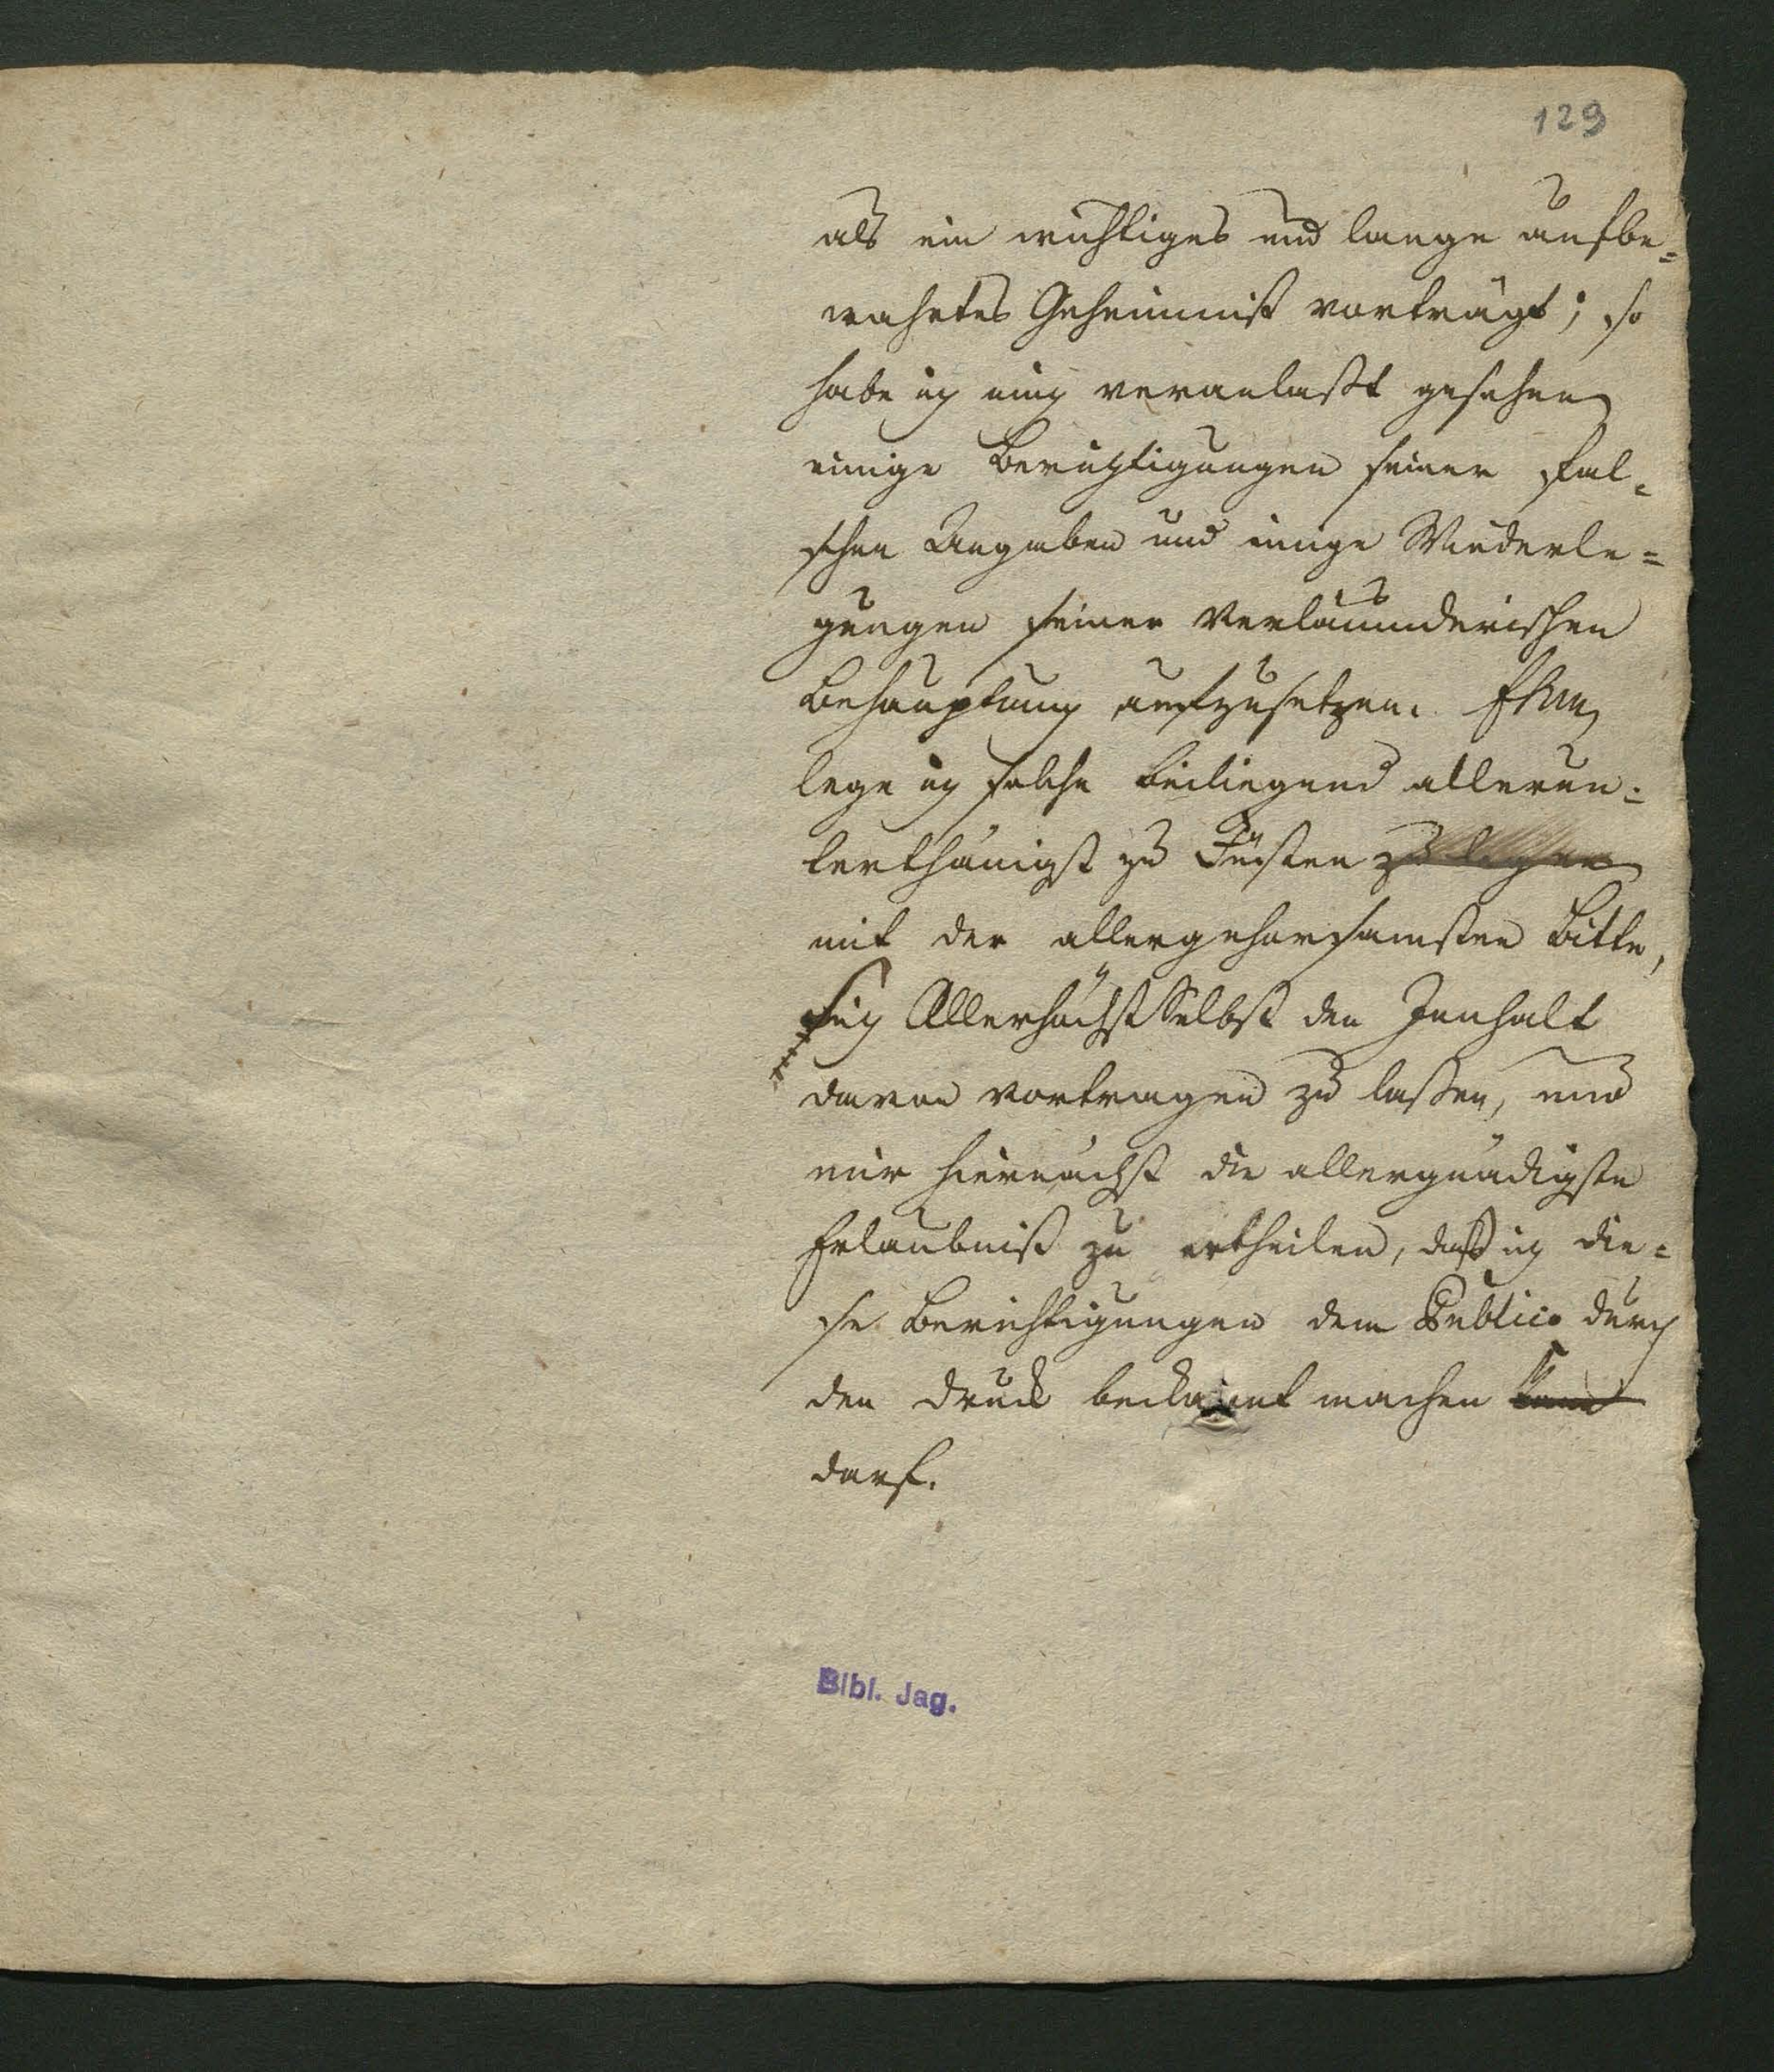 129
als ein wichtiges und lange aufbe=
wahrtes Geheimniß vorträgt; so
habe ich mich veranlaßt gesehen
einige Berichtigungen seiner fal=
schen Angaben und einige Wiederle=
gungen seiner Verläumderischen
Behauptung aufzusetzen.
lege ich solche beiliegend allerun=
terthänigst zu Füßen zu legen
mit der allergehorsamsten Bitte,
Sich Allerhöchst Selbst den Innhalt
davon vortragen zu laßen, und
mir hiernächst die allergnädigste
Erlaubniß zu ertheilen, daß ich die=
se Berichtigungen dem Publico durch
den Druck beckannt machen kann
darf.
Bibl. Jag.